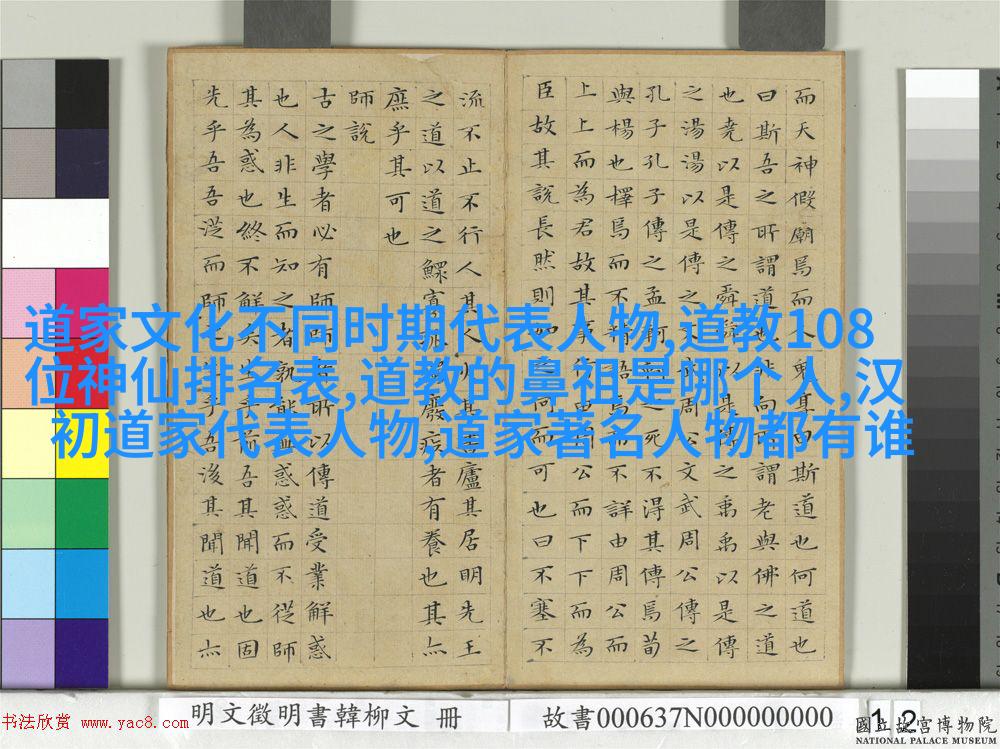 道家文化不同时期代表人物,道教108
位神仙排名表,道教的鼻祖是哪个人,汉
初道家代表人物,道家著名人物都有谁
而天神假廟焉而人鬼享曰斯道也何道也
曰斯吾之所謂道也非向所謂老與佛之道
也堯以是傳之舜舜以是傳之禹禹以是傳
之湯湯以是傳之文武周公文武周公傳之
孔子孔子傳之孟軻軻之死不得其傳焉荀
與楊也擇焉而不精語焉而不詳由周公而
上上而為君故其事行由周公而下下而為
臣故其說長然則如之何而可也曰不塞不
流不止不行人其人火其書廬其居明先王
之道以道之鰥寡孤獨廢疾者有養也其亦
庶乎其可也
師說
古之學者必有師師者所以傳道受業解惑
也人非生而知之者孰能無惑惑而不從師
其為惑也終不解矣生乎吾前其聞道也固
先乎吾吾從而師之生乎吾後其聞道也亦
明文徵明書韓柳文 冊
故書000637N000000000
12
書法欣赏 www.yac8.com
國立故宮博物院
NATIONAL PALACE MUSEUM